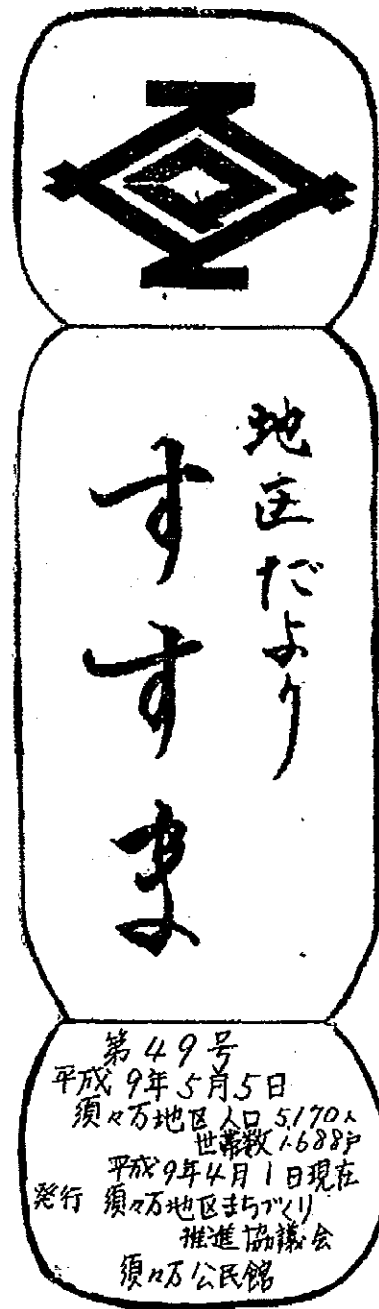 地区だより
すすま
第49号
平成9年5月5日
須々万地区人口5,170人
世帯数1,688戸
平成9年4月1日現在
発行 須々万地区まちづくり
推進協議会
須々万公民館